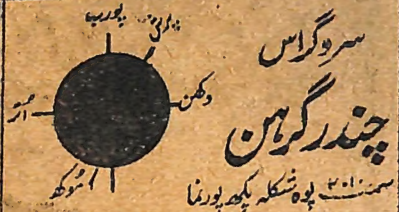 سروگراس
چندر گرہن
پوہ شکلہ پکھ پورنما
پورب
دکھن
اتر
موکھ